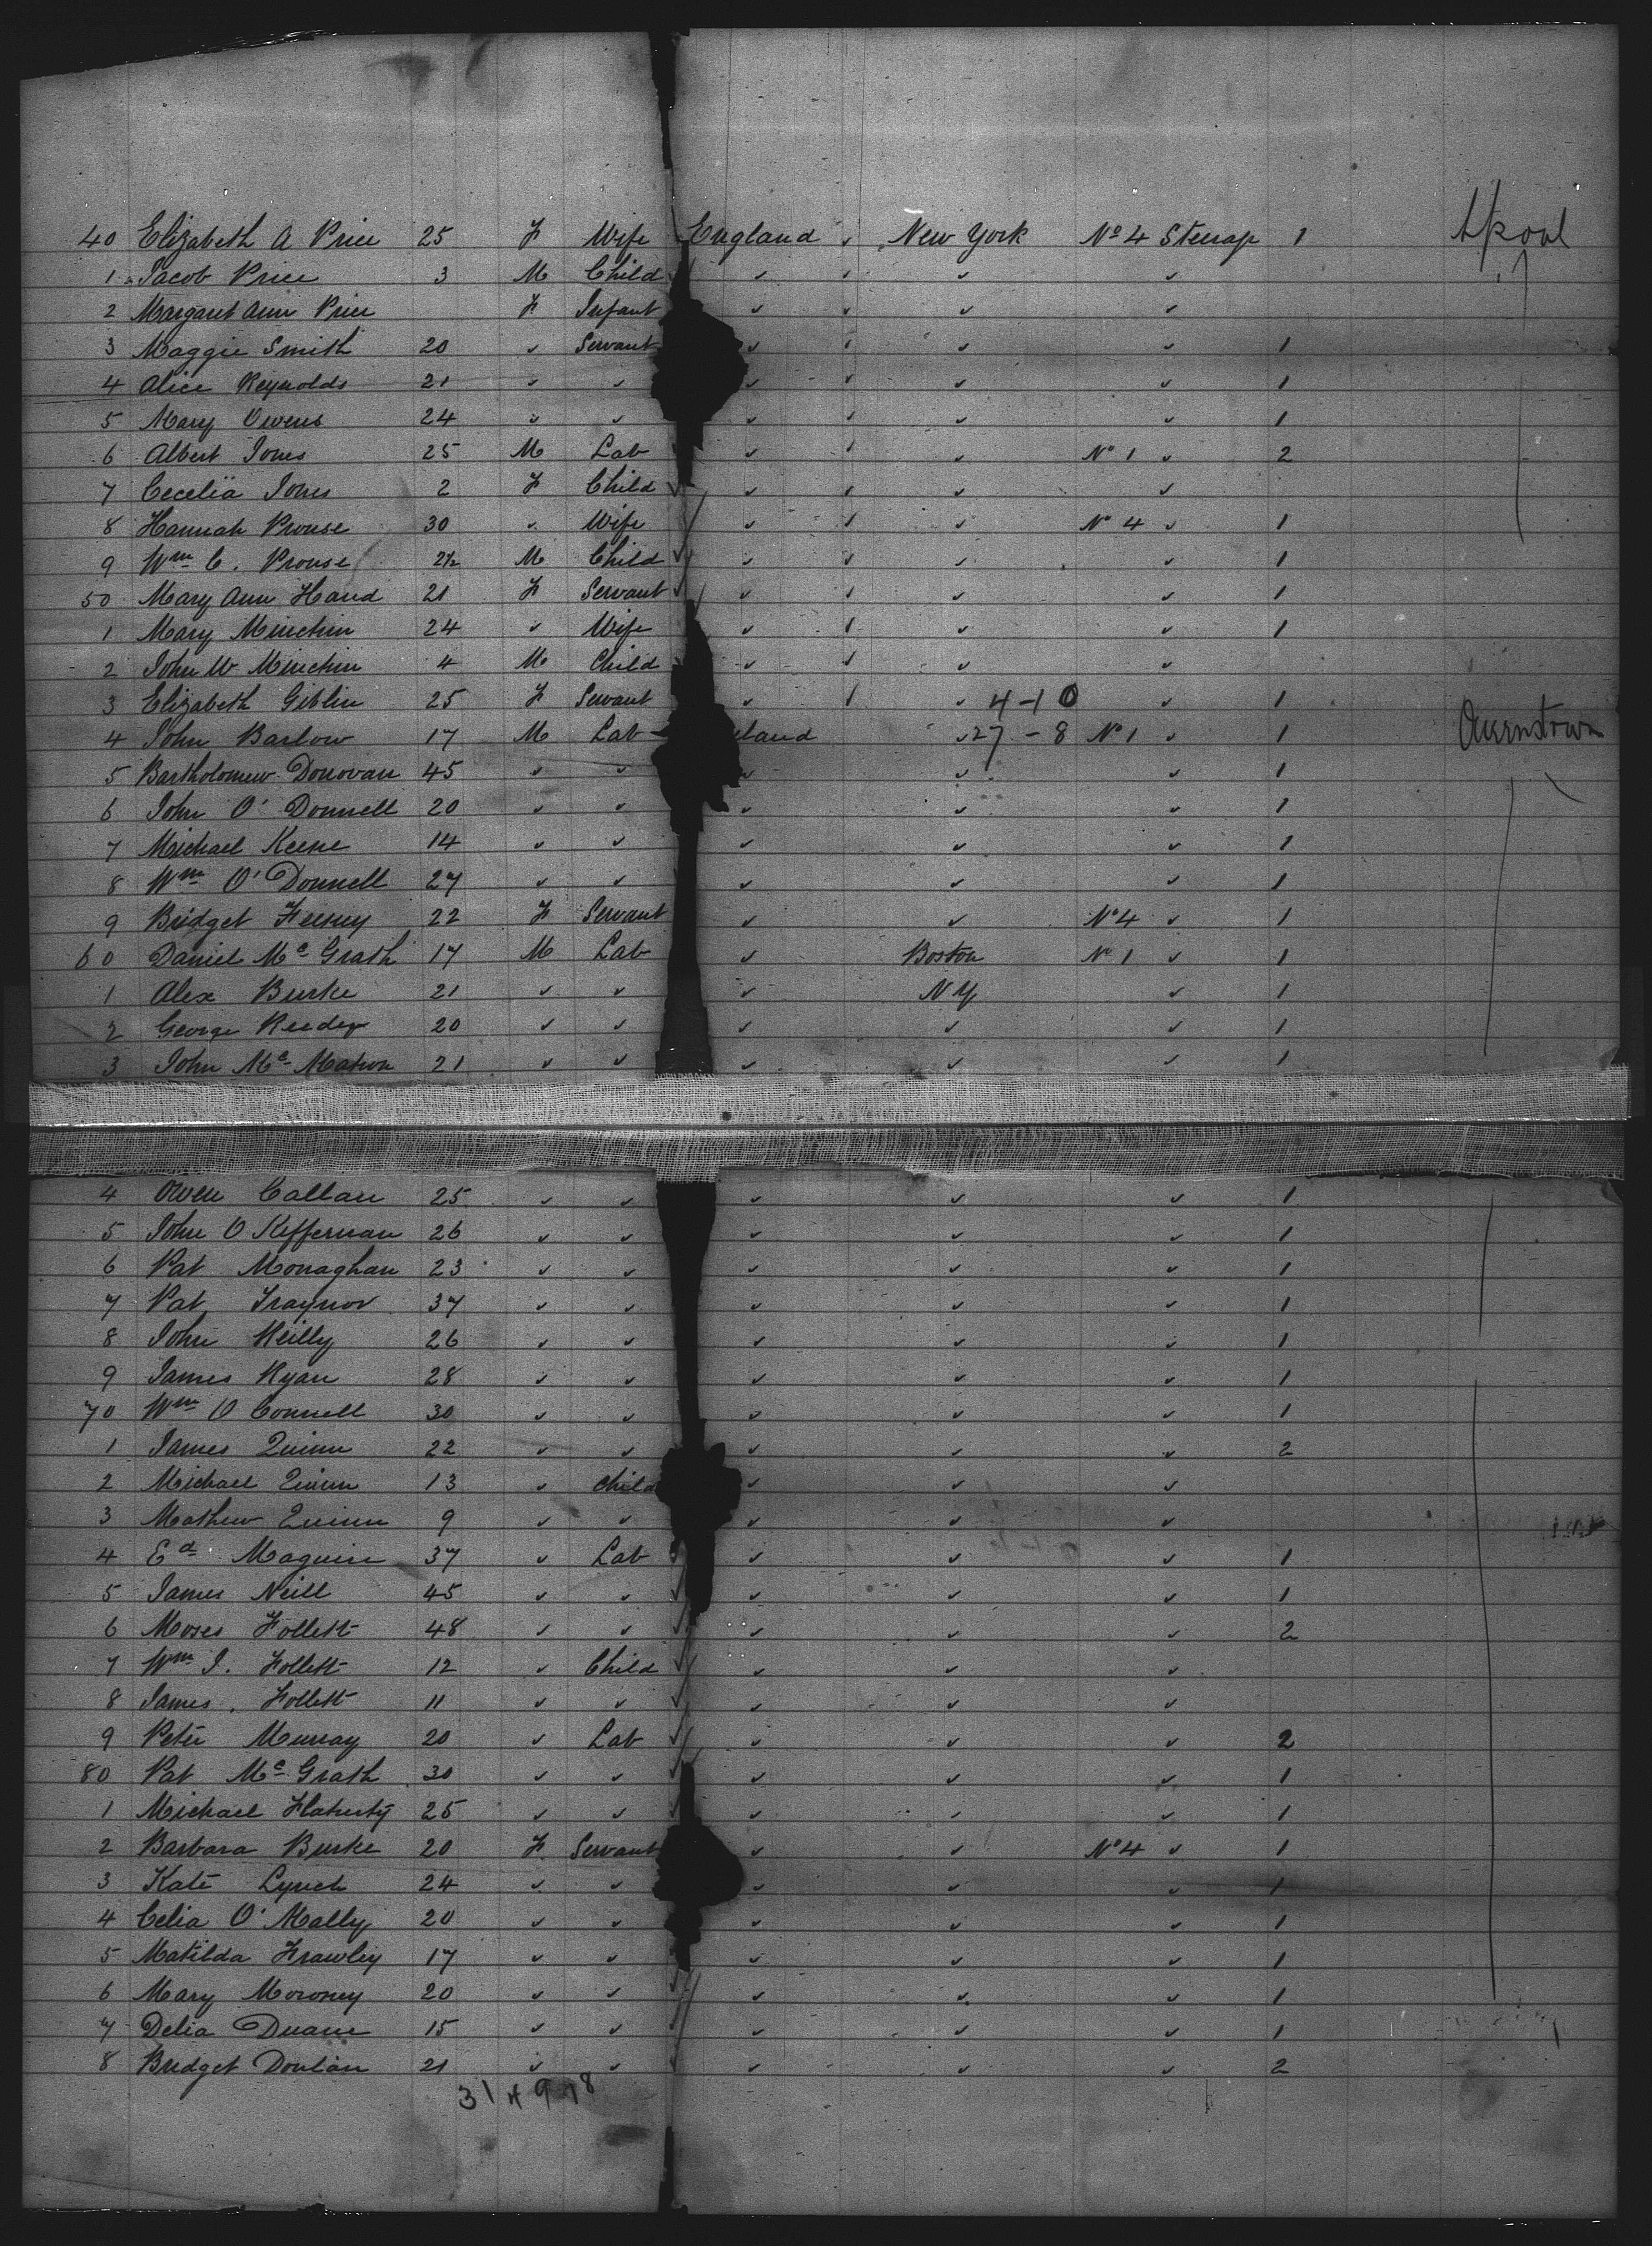 40 Elizabeth A Price 25 F Wife England New York No 4 Steerage 1 L'pool
1 Jacob Price 3 M Child ✓ ✓ ✓
2 Margaret Ann Price F Infant ✓ ✓ ✓
3 Maggie Smith 20 ✓ Servant ✓ ✓ ✓ 1
4 Alice Reynolds 21 ✓ ✓ ✓ ✓ ✓ 1
5 Mary Owens 24 ✓ ✓ ✓ ✓ ✓ 1
6 Albert Jones 25 M Lab ✓ ✓ No 1 ✓ 2
7 Cecelia Jones 2 F Child ✓ ✓ ✓
8 Hannah Prouse 30 ✓ Wife ✓ ✓ No 4 ✓ 1
9 Wm C. Prouse 2½ M Child ✓ ✓ ✓ 1
50 Mary Ann Hand 21 F Servant ✓ ✓ ✓ 1
1 Mary Minchin 24 ✓ Wife ✓ ✓ ✓ 1
2 John W Minchin 4 M Child ✓ ✓ ✓
3 Elizabeth Giblin 25 F Servant ✓ ✓ 4-10 ✓ 1
4 John Barlow 17 M Lab land ✓ 27-8 No 1 ✓ 1 Queenstown
5 Bartholomew Donovan 45 ✓ ✓ ✓ ✓ ✓ 1
6 John O'Donnell 20 ✓ ✓ ✓ ✓ ✓ 1
7 Michael Keene 14 ✓ ✓ ✓ ✓ ✓ 1
8 Wm O'Donnell 27 ✓ ✓ ✓ ✓ ✓ 1
9 Bridget Feeney 22 F Servant ✓ ✓ No 4 ✓ 1
60 Daniel Mc Grath 17 M Lab ✓ Boston No 1 ✓ 1
1 Alex Burke 21 ✓ ✓ ✓ N Y ✓ 1
2 George Reeder 20 ✓ ✓ ✓ ✓ ✓ 1
3 John Mc Mahon 21 ✓ ✓ ✓ ✓ ✓ 1
4 Owen Callan 25 ✓ ✓ ✓ ✓ ✓ 1
5 John O Keffernan 26 ✓ ✓ ✓ ✓ ✓ 1
6 Pat Monaghan 23 ✓ ✓ ✓ ✓ ✓ 1
7 Pat Traynor 37 ✓ ✓ ✓ ✓ ✓ 1
8 John Reilly 26 ✓ ✓ ✓ ✓ ✓ 1
9 James Ryan 28 ✓ ✓ ✓ ✓ ✓ 1
70 Wm O Connell 30 ✓ ✓ ✓ ✓ ✓ 1
1 James Quinn 22 ✓ ✓ ✓ ✓ ✓ 2
2 Michael Quinn 13 ✓ Child ✓ ✓ ✓
3 Mathew Quinn 9 ✓ ✓ ✓ ✓ ✓
4 Ed Maguire 37 ✓ Lab ✓ ✓ ✓ 1
5 James Neill 45 ✓ ✓ ✓ ✓ ✓ 1
6 Moses Follett 48 ✓ ✓ ✓ ✓ ✓ 2
7 Wm J. Follett 12 ✓ Child ✓ ✓ ✓
8 James. Follett 11 ✓ ✓ ✓ ✓ ✓
9 Peter Murray 20 ✓ Lab ✓ ✓ ✓ 2
80 Pat Mc Grath 30 ✓ ✓ ✓ ✓ ✓ 1
1 Michael Flaherty 25 ✓ ✓ ✓ ✓ ✓ 1
2 Barbara Burke 20 F Servant ✓ ✓ No 4 ✓ 1
3 Kate Lynch 24 ✓ ✓ ✓ ✓ ✓ 1
4 Celia O'Mally 20 ✓ ✓ ✓ ✓ ✓ 1
5 Matilda Frawley 17 ✓ ✓ ✓ ✓ ✓ 1
6 Mary Moroney 20 ✓ ✓ ✓ ✓ ✓ 1
7 Delia Duane 15 ✓ ✓ ✓ ✓ ✓ 1
8 Bridget Donlan 21 ✓ ✓ ✓ ✓ ✓ 2